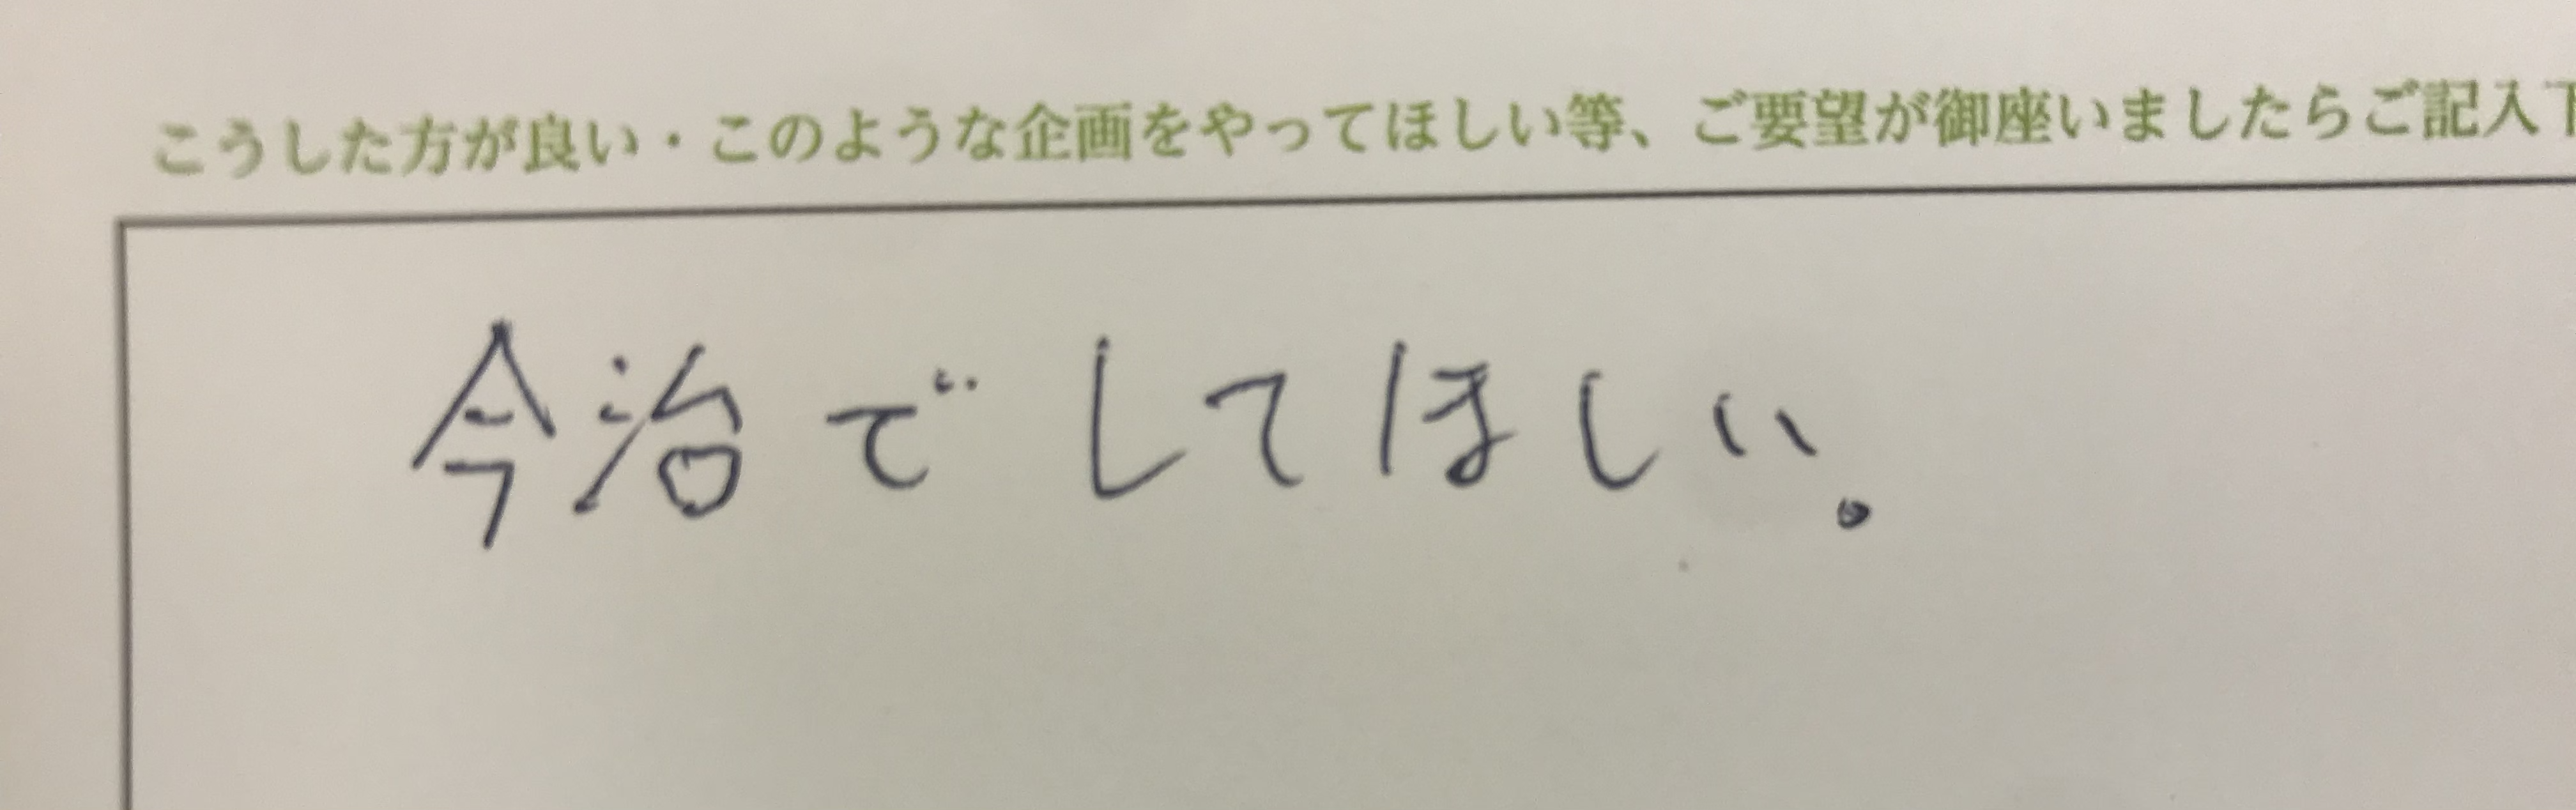 こうした方が良い・このような企画をやってほしい等、ご要望が御座いましたらご記入下
今治でしてほしい。